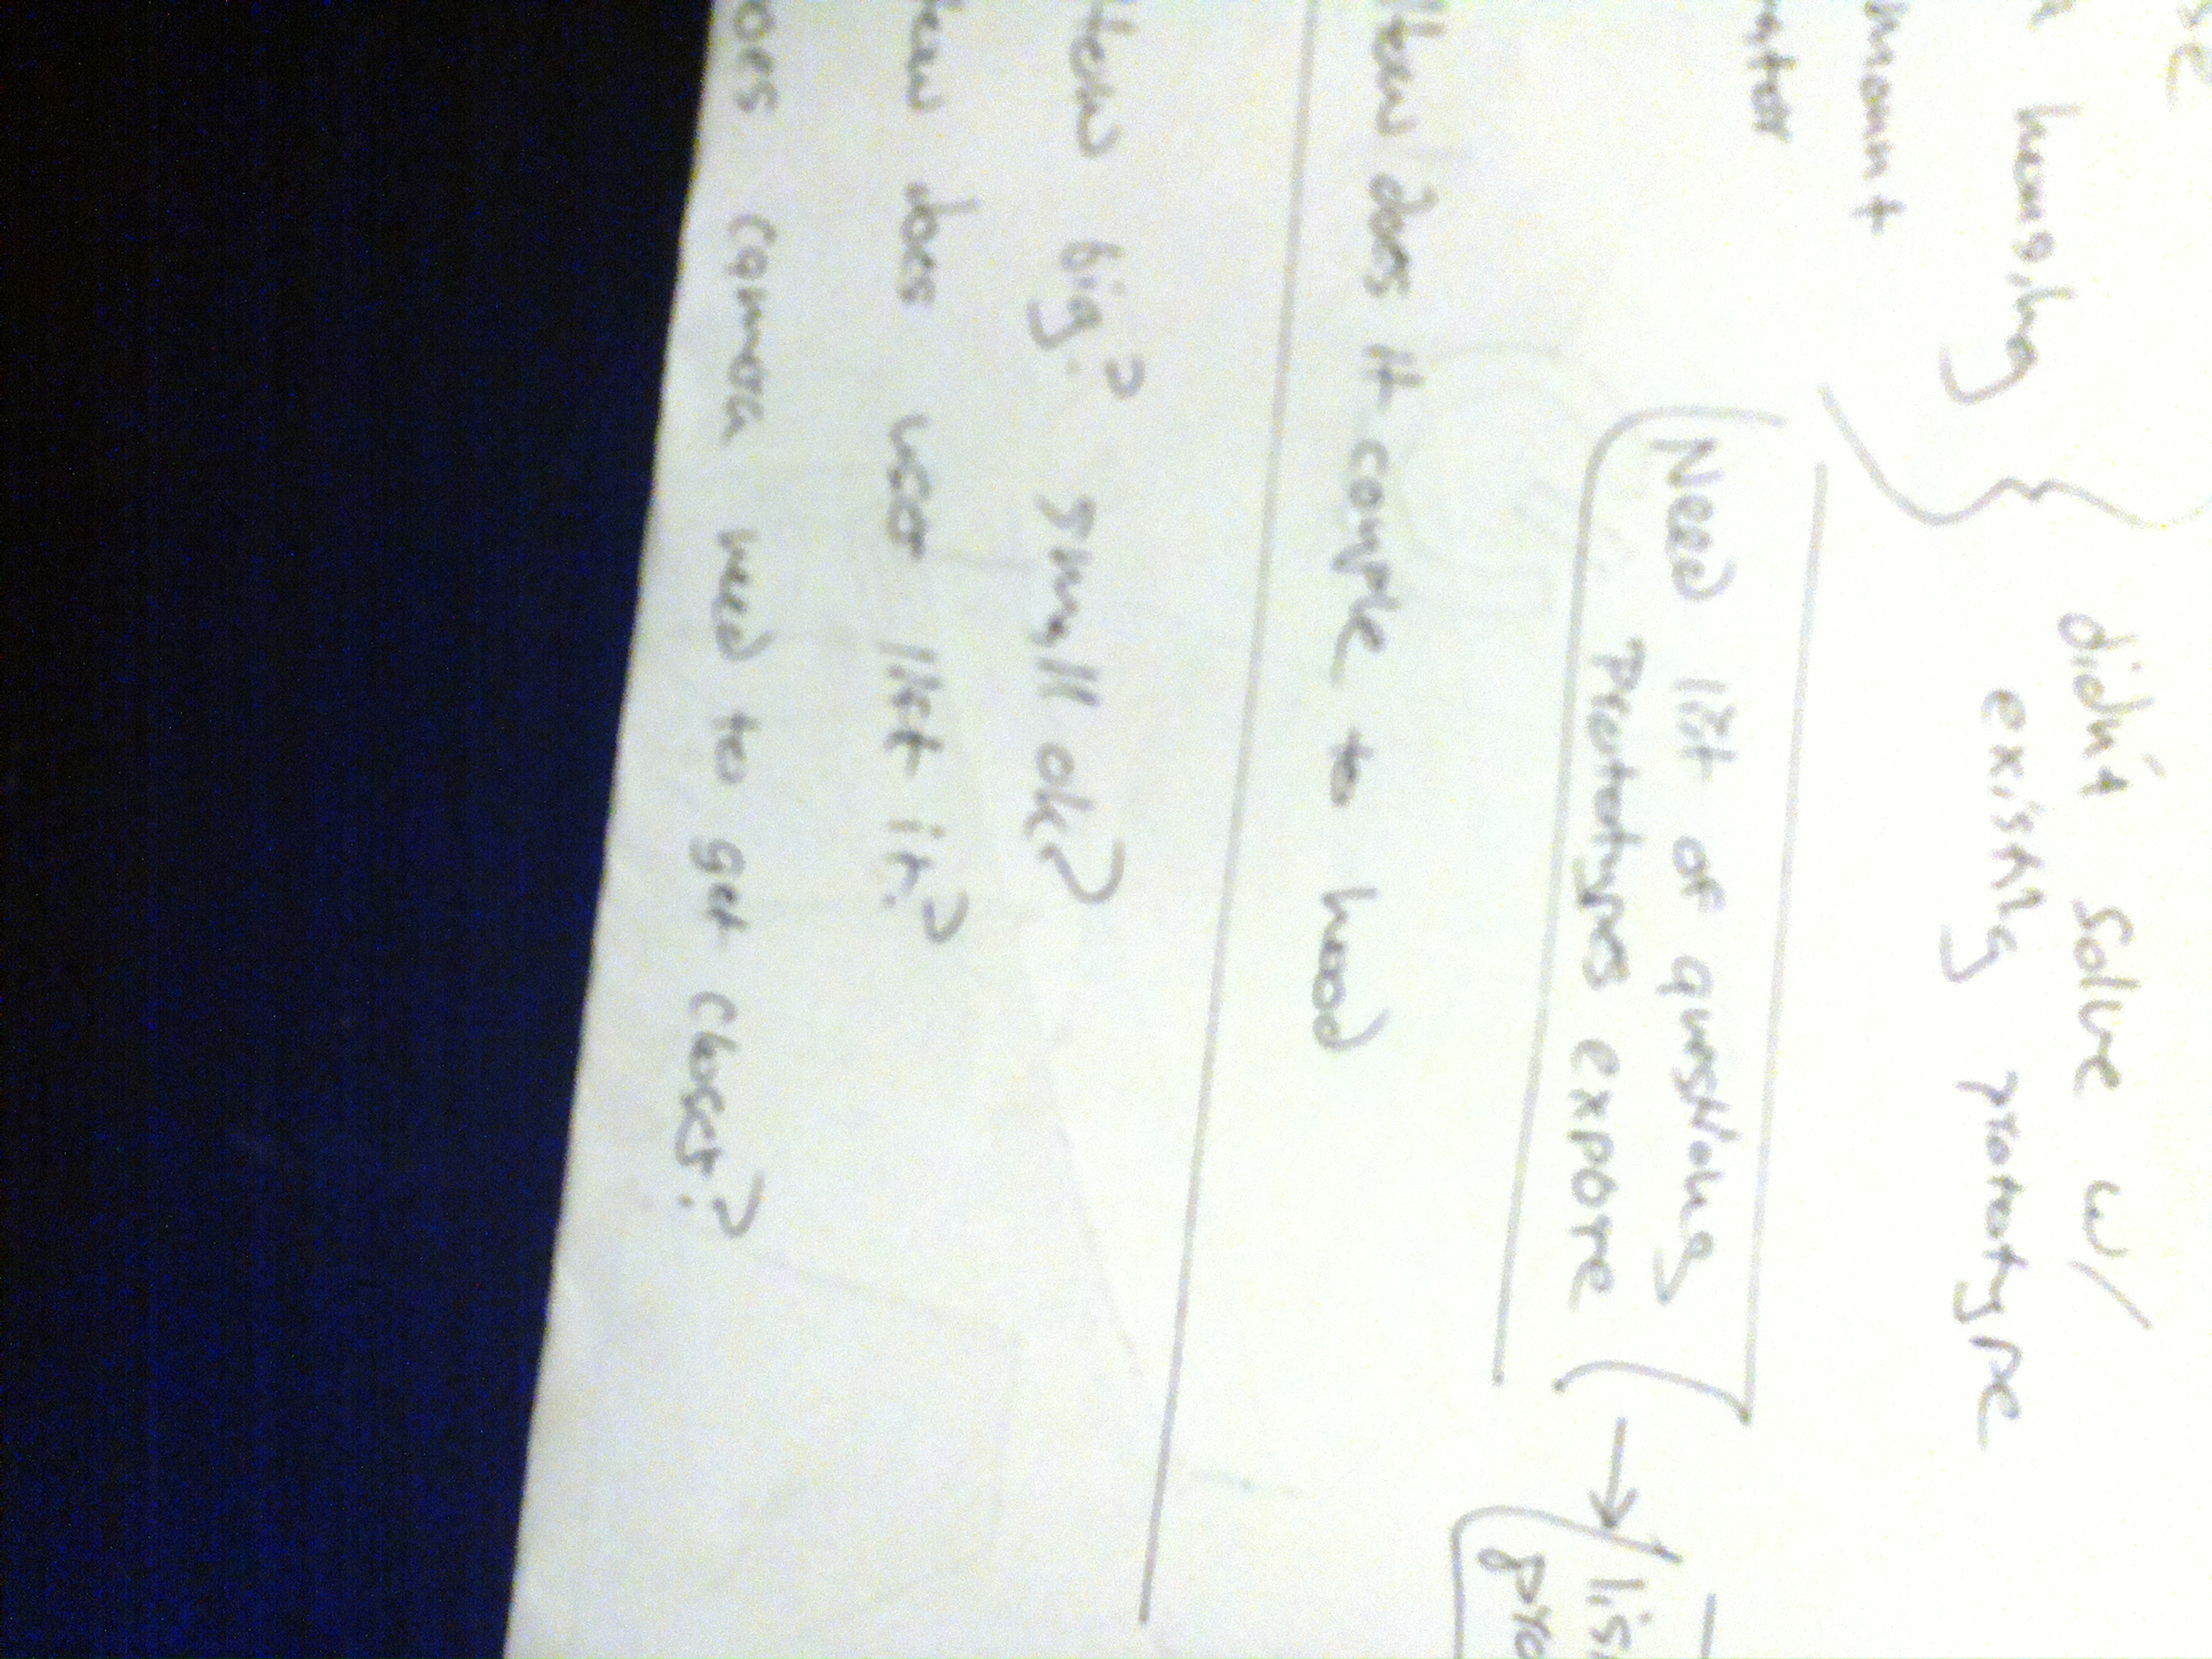 housing
didn't solve w/
existing prototype
mount
Need list of questions
Prototypes expore
How does it couple to hood
How big? small ok?
How does user lift it?
camera need to get closer?